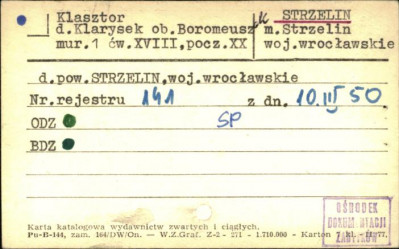 Klasztor
d.Klarysek ob.Boromeusz
mur.1 ćw.XVIII,pocz.XX
K STRZELIN
m.Strzelin
woj.wrocławskie
d.pow.STRZELIN,woj.wrocławskie
Nr.rejestru 141 z dn. 10.III 50
ODZ SP
BDZ
Karta katalogowa wydawnictw zwartych i ciągłych.
Pu-B-144, zam. 164/DW/On. — W.Z.Graf. Z-2 - 271 - 1.710.000 - Karton
OŚRODEK
DOKUMENTACJI
ZABYTKÓW